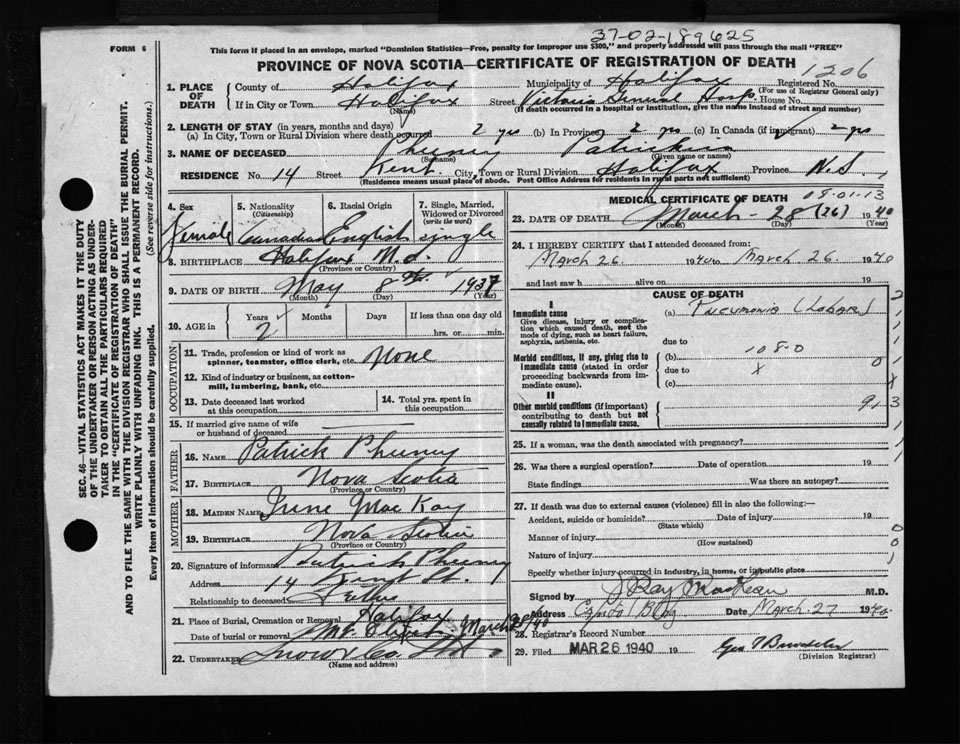 37-02-189625
FORM 6
This form if placed in an envelope, marked "Dominion Statistics—Free, penalty for improper use $300," and properly addressed will pass through the mail "FREE"
PROVINCE OF NOVA SCOTIA—CERTIFICATE OF REGISTRATION OF DEATH
1206
1. PLACE OF DEATH
County of Halifax Municipality of Halifax Registered No.
(For use of Registrar General only)
If in City or Town Halifax Street Victoria General Hosp. House No.
(Name) (If death occurred in a hospital or institution, give the name instead of street and number)
2. LENGTH OF STAY (in years, months and days)
(a) In City, Town or Rural Division where death occurred 2 yrs (b) In Province 2 yrs (c) In Canada (if immigrant) 2 yrs
3. NAME OF DECEASED Pheeney
(Surname) (Given name or names)
RESIDENCE No. 14 Street Kent City, Town or Rural Division Halifax Province N.S.
(Residence means usual place of abode. Post Office Address for residents in rural parts not sufficient)
4. Sex
Female
5. Nationality
(Citizenship)
Canadian
6. Racial Origin
English
7. Single, Married, Widowed or Divorced
(write the word)
single
8. BIRTHPLACE Halifax N.S.
(Province or Country)
9. DATE OF BIRTH May 8th 1937
(Month) (Day) (Year)
10. AGE in
Years Months Days If less than one day old
2 hrs. or min.
OCCUPATION
11. Trade, profession or kind of work as spinner, teamster, office clerk, etc. None
12. Kind of industry or business, as cotton-mill, lumbering, bank, etc.
13. Date deceased last worked at this occupation
14. Total yrs. spent in this occupation
15. If married give name of wife or husband of deceased
FATHER
16. NAME Patrick Pheeney
17. BIRTHPLACE Nova Scotia
(Province or Country)
MOTHER
18. MAIDEN NAME Irene MacKay
19. BIRTHPLACE Nova Scotia
(Province or Country)
20. Signature of informant Patrick Pheeney
Address 14 Kent St.
Relationship to deceased Father
21. Place of Burial, Cremation or Removal Halifax
Date of burial or removal Mt. Olivet March 28/40
22. UNDERTAKER Snow & Co.
(Name and address)
MEDICAL CERTIFICATE OF DEATH
09-01-13
23. DATE OF DEATH March - 28 (26) 1940
(Month) (Day) (Year)
24. I HEREBY CERTIFY that I attended deceased from:
March 26. 1940 to March 26. 1940
and last saw h alive on 19
CAUSE OF DEATH
I
Immediate cause
Give disease, injury or complication which caused death, not the mode of dying, such as heart failure, asphyxia, asthenia, etc.
(a) Pneumonia (Lobar)
due to
Morbid conditions, if any, giving rise to immediate cause (stated in order proceeding backwards from immediate cause).
(b) 108-0 0
due to x x
(c)
II
Other morbid conditions (important) contributing to death but not causally related to immediate cause.
913
25. If a woman, was the death associated with pregnancy?
26. Was there a surgical operation? Date of operation 19
State findings Was there an autopsy?
27. If death was due to external causes (violence) fill in also the following:—
Accident, suicide or homicide? Date of injury 19
(State which)
Manner of injury
(How sustained)
Nature of injury
Specify whether injury occurred in industry, in home, or in public place
Signed by J Ray M.D.
Address Capitol Bldg Date March. 27 1940
28. Registrar's Record Number
29. Filed MAR 26 1940 19
(Division Registrar)
SEC. 46—VITAL STATISTICS ACT MAKES IT THE DUTY OF THE UNDERTAKER OR PERSON ACTING AS UNDERTAKER TO OBTAIN ALL THE PARTICULARS REQUIRED IN THE "CERTIFICATE OF REGISTRATION OF DEATH" AND TO FILE THE SAME WITH THE DIVISION REGISTRAR WHO SHALL ISSUE THE BURIAL PERMIT.
WRITE PLAINLY WITH UNFADING INK. THIS IS A PERMANENT RECORD.
Every item of information should be carefully supplied. (See reverse side for instructions.)